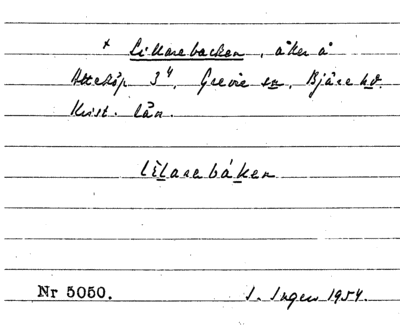 x Lillarebacken, åker å
Atteköp 3⁴, Grevie sn, Bjäre hd.
Krist. län.
lìlarebáken
Nr 5050.
1954.